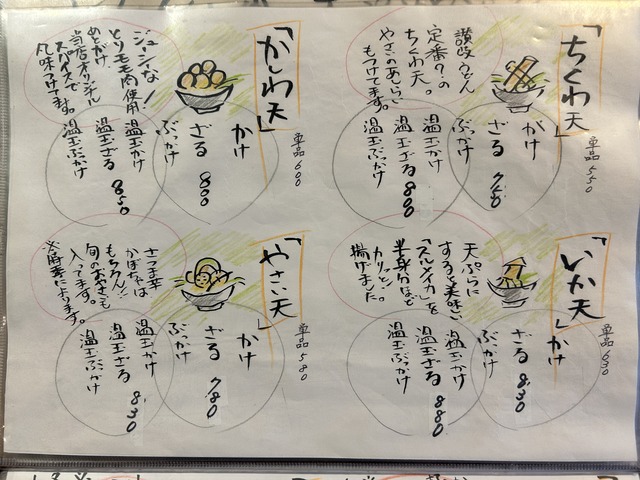 「ちくわ天」
単品550
讃岐うどん
定番?の
ちくわ天。
やさいのあらごし
もつけてます。
かけ
ざる 750
ぶっかけ
温玉かけ
温玉ざる 800
温玉ぶっかけ
「かしわ天」
単品600
ジューシィな!
とりモモ肉使用
あとがけ
当店オリジナル
スパイスで
風味つけてます。
かけ
ざる 800
ぶっかけ
温玉かけ
温玉ざる 850
温玉ぶっかけ
「いか天」
単品630
天ぷらに
すると美味い、
「スルメイカ」を
半身分ほど
カリッと!
揚げました
かけ
ざる 830
ぶっかけ
温玉かけ
温玉ざる 880
温玉ぶっかけ
「やさい天」
単品580
さつま芋
かぼちゃは
もちろん!!
旬のおやさいも
入ってます。
※時季によります。
かけ
ざる 780
ぶっかけ
温玉かけ
温玉ざる 830
温玉ぶっかけ